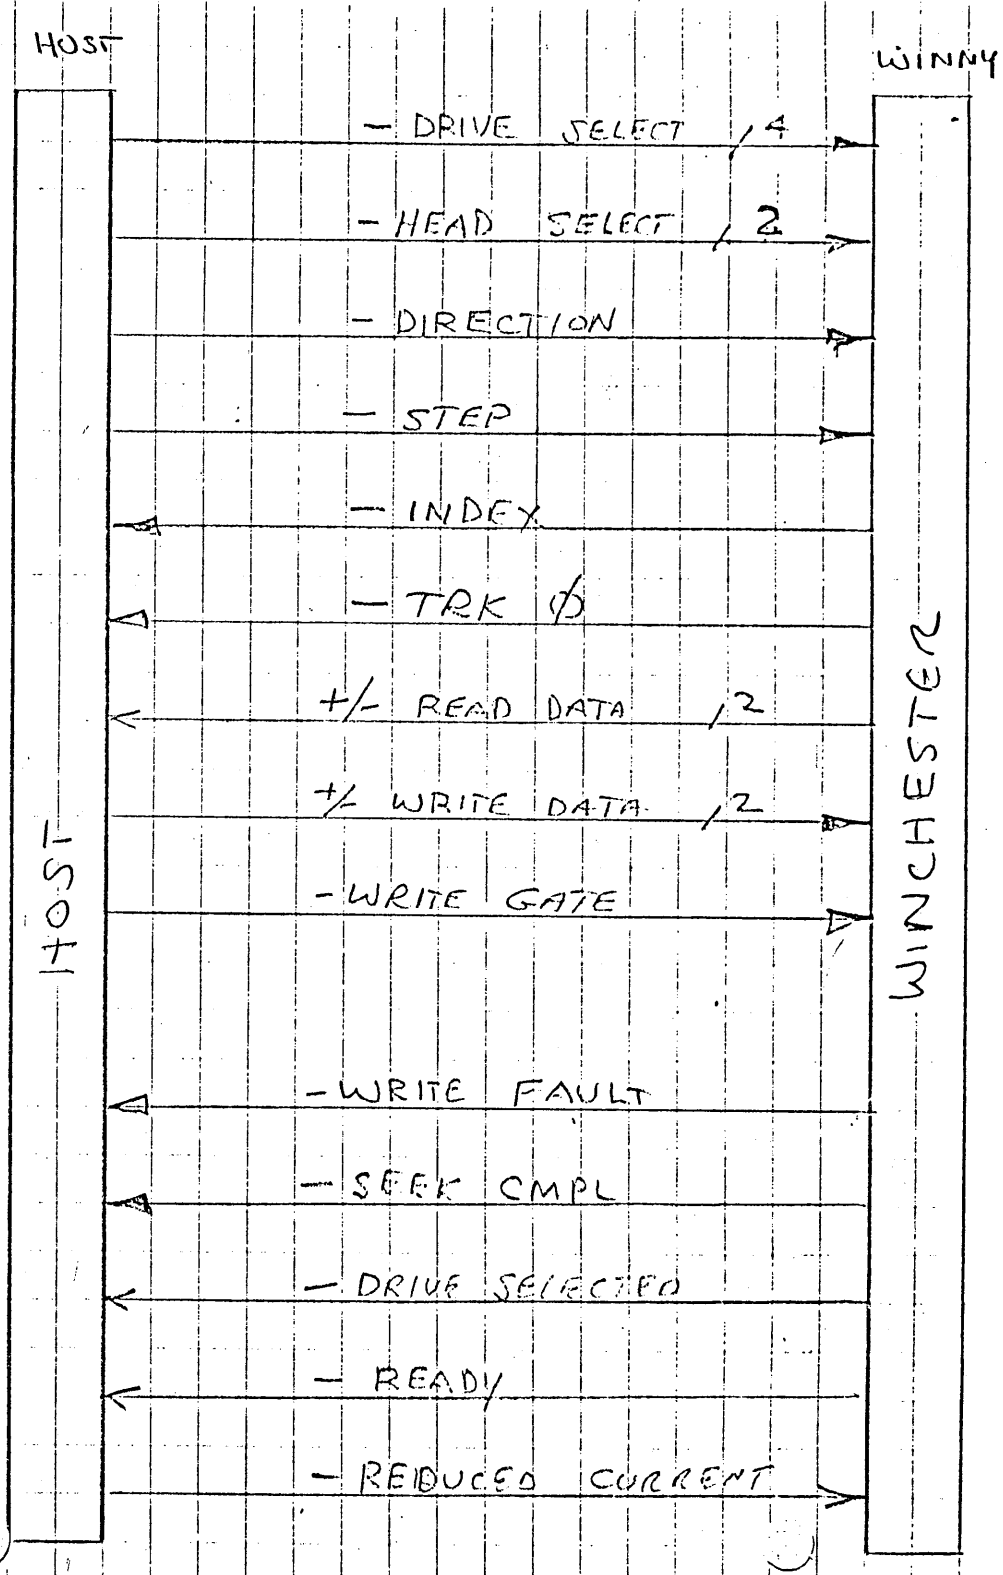 HOST
WINNY
- DRIVE SELECT / 4
- HEAD SELECT / 2
- DIRECTION
- STEP
- INDEX
- TRK Ø
+/- READ DATA / 2
+/- WRITE DATA / 2
- WRITE GATE
HOST
WINCHESTER
- WRITE FAULT
- SEEK CMPL
- DRIVE SELECTED
- READY
- REDUCED CURRENT